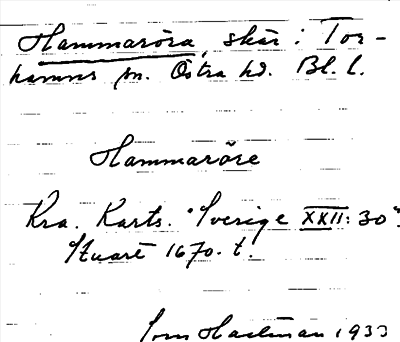 Hammaröra, skär i Tor-
hamns sn. Östra hd. Bl. l.
Hammaröre
Kra. Karts. "Sverige XXII: 30".
Stuart 1670. t.
Hartman 1933